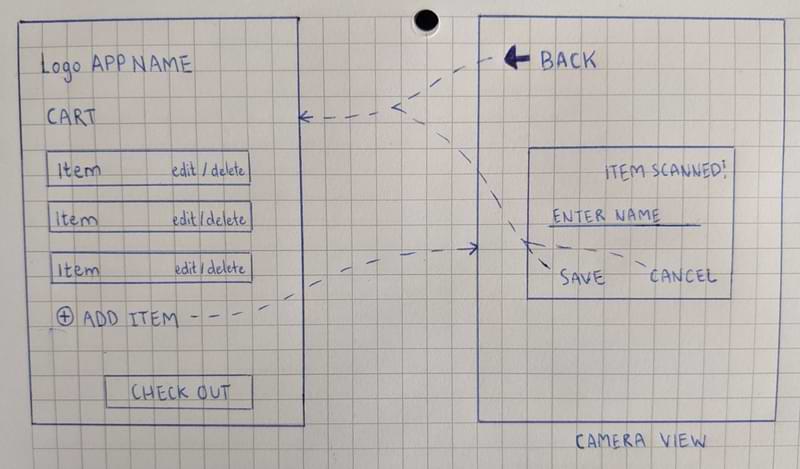 Logo APP NAME
CART
Item edit/delete
Item edit/delete
Item edit/delete
ADD ITEM
CHECK OUT
BACK
ITEM SCANNED!
ENTER NAME
SAVE CANCEL
CAMERA VIEW